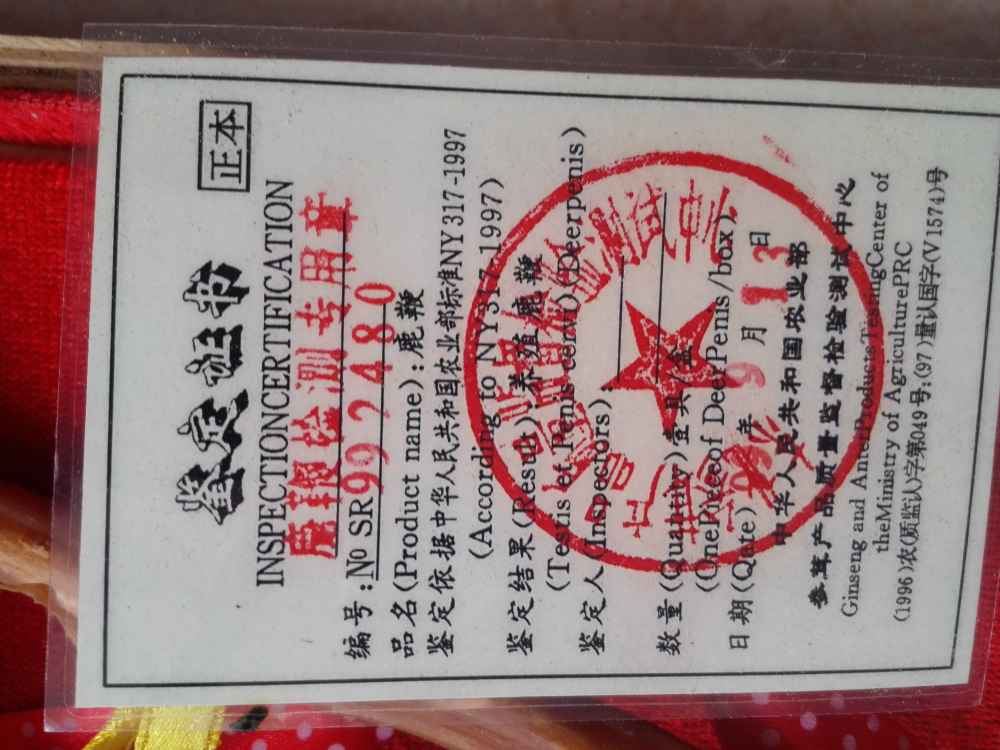 正本
鉴定证书
INSPECTIONCERTIFICATION
鹿鞭检测专用章
编号:№ SR 992480
品名(Product name):鹿鞭
鉴定依据中华人民共和国农业部标准NY317-1997
(According to NY317-1997)
鉴定结果(Result):养殖鹿鞭
(Testis et Penis cervi)(Deerpenis)
鉴定人(Inspectors)
数量(Quantity)壹具/盒
(OnePieceof DeerPenis/box)
日期(Qate) 年9月13日
中华人民共和国农业部
参茸产品质量监督检验测试中心
Ginseng and AntlerProductsTestingCenter of
theMinistry of AgriculturePRC
(1996)农(质监认)字第049号:(97)量认国字(V1574)号